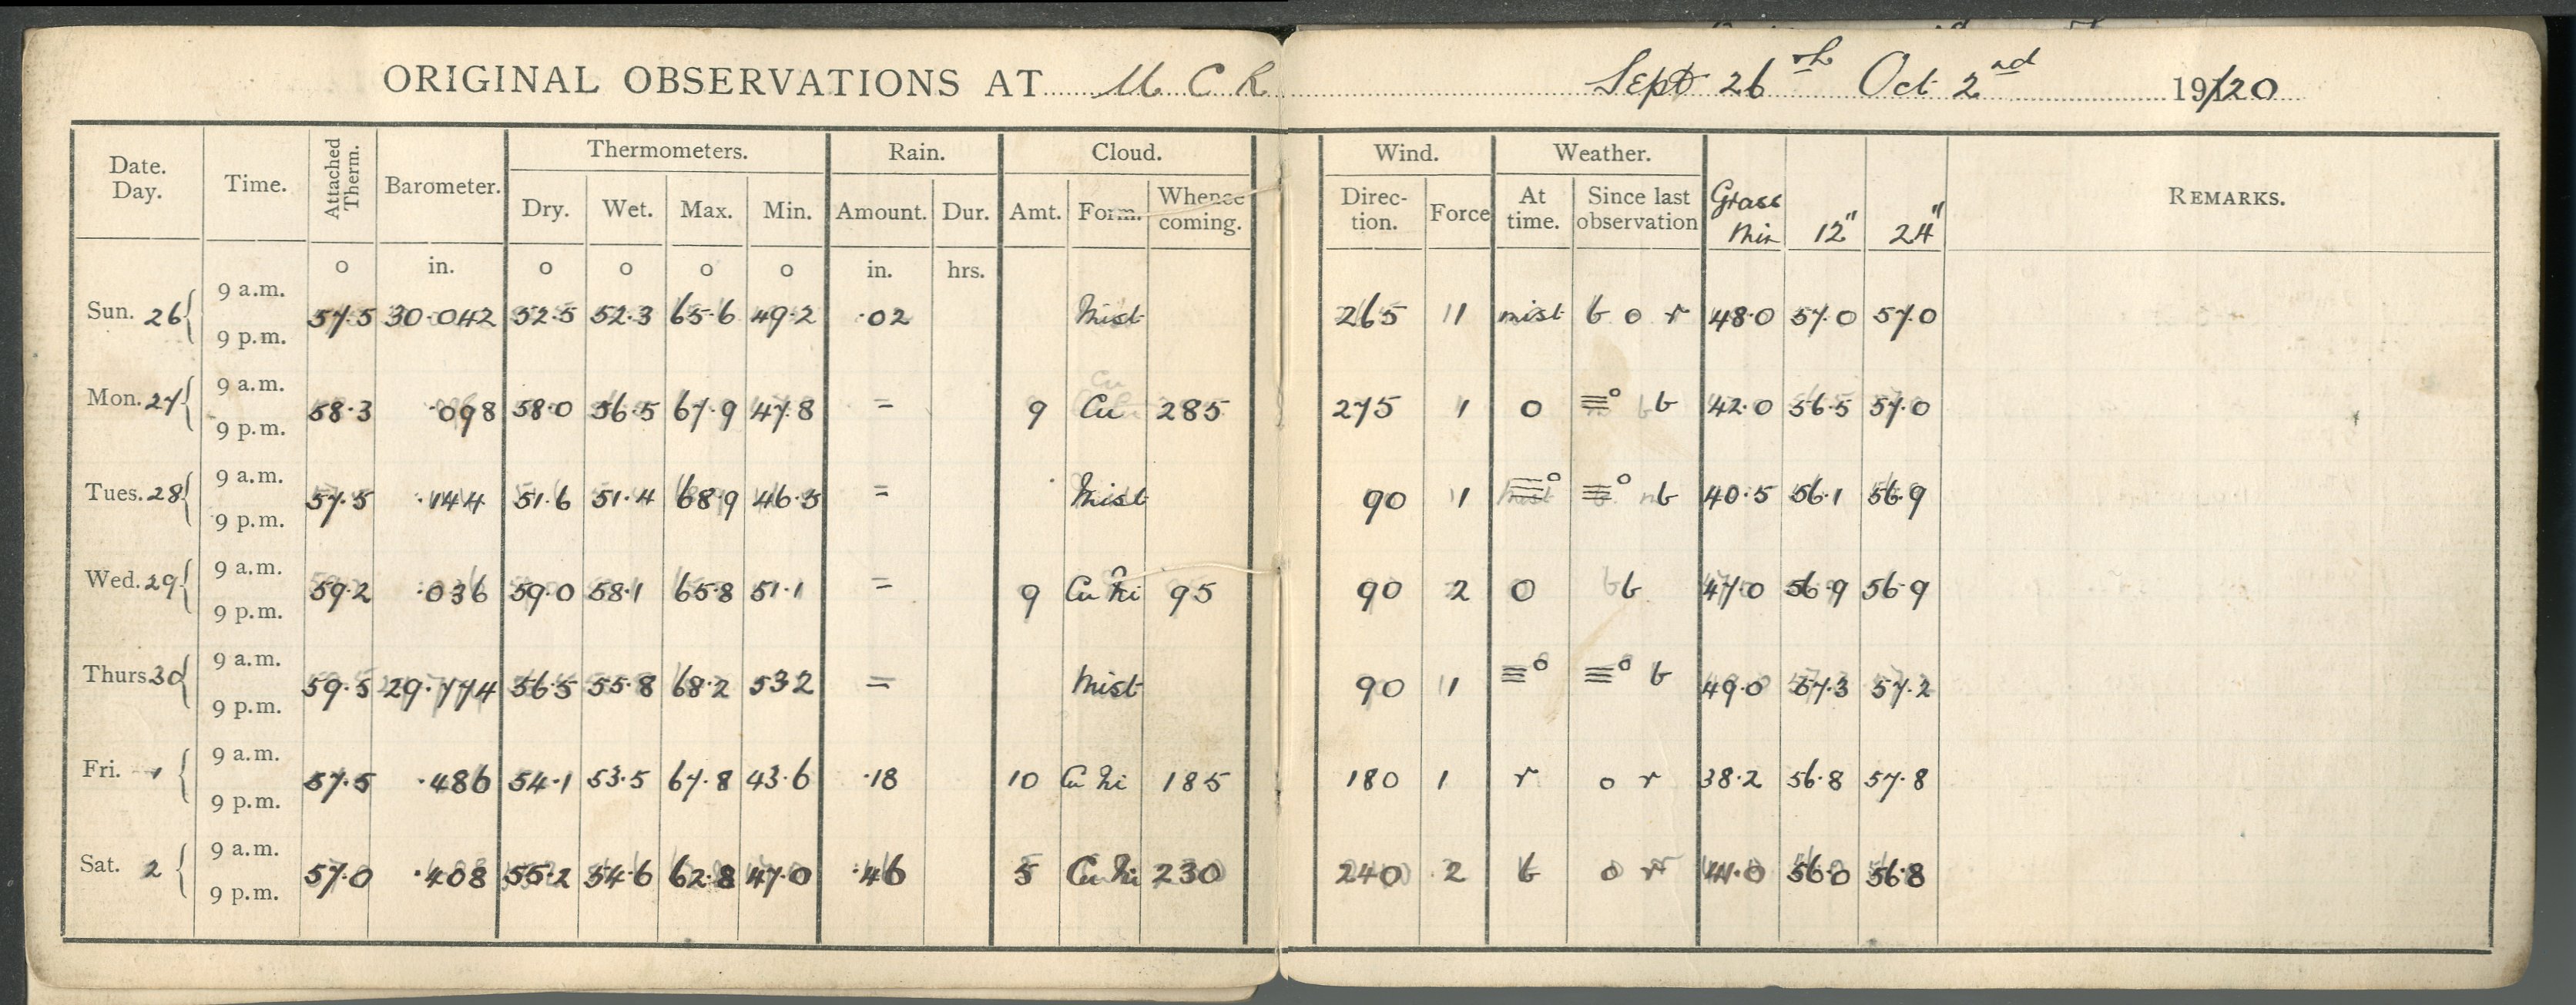 ORIGINAL OBSERVATIONS AT M C R Sept 26th Oct 2nd 19120
Date. Day. Time. Attached Therm. Barometer. Thermometers. Rain. Cloud. Wind. Weather. Grass Min 12" 24" REMARKS.
Dry. Wet. Max. Min. Amount. Dur. Amt. Form. Whence coming. Direc- tion. Force At time. Since last observation
o in. o o o o in. hrs.
Sun. 26 { 9 a.m. 57.5 30.042 52.5 52.3 65.6 49.2 .02 Mist 265 1 mist b o r 48.0 57.0 57.0
9 p.m.
Mon. 27 { 9 a.m. 58.3 .098 58.0 56.5 67.9 47.8 – 9 Cu 285 275 1 o ≡° b 42.0 56.5 57.0
9 p.m.
Tues. 28 { 9 a.m. 57.5 .144 51.6 51.4 68.9 46.5 – Mist 90 1 ≡° ≡° b 40.5 56.1 56.9
9 p.m.
Wed. 29 { 9 a.m. 59.2 .036 59.0 58.1 65.8 51.1 – 9 Cu Ni 95 90 2 o b 47.0 56.9 56.9
9 p.m.
Thurs 30 { 9 a.m. 59.5 29.774 56.5 55.8 68.2 53.2 – Mist 90 1 ≡° ≡° b 49.0 57.3 57.2
9 p.m.
Fri. 1 { 9 a.m. 57.5 .486 54.1 53.5 67.8 43.6 .18 10 Cu Ni 185 180 1 r o r 38.2 56.8 57.8
9 p.m.
Sat. 2 { 9 a.m. 57.0 .408 55.2 54.6 62.8 47.0 .46 5 Cu Ni 230 240 2 b o r 41.0 56.0 56.8
9 p.m.